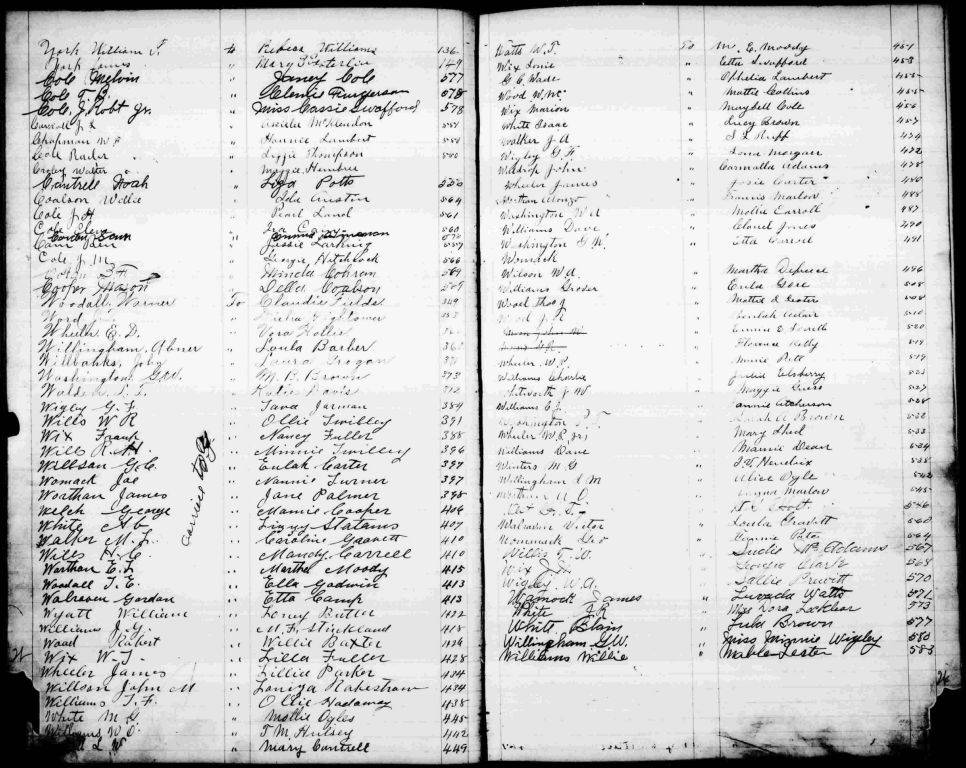 York William T. to Rebeca Williams 136
York James " Mary Easterlin 149
Cole Melvin " Janey Cole 577
Cole T B " Clemie Furgerson 578
Cole J Robt Jr. " Miss Cassie Swafford 578
Carroll J L " McClendon 551
Chapman W F " Hannie Lambert 550
Cole Rader " Lizzie Thompson 540
Walter " Maggie Hambrie
Cantrell Noah " Lega Potts 550
Coalson Willie " Ida Austin 564
Cole J H " Pearl Land 561
Cole " 560
Cain " Jessie Larking 557
Cole J. M. " George Hitchcock 566
" Minda Cohran 569
Cooper Mason " Della Coalson 507
Woodall Warner To Claudie Fields 349
Ward " Hightower 353
Wheeler E. D. " Vera Hollis
Willingham Abner " Loula Barber 365
Willbanks, John " Laura Grogan 371
Washington Geo. " M. B. Brown 373
" Katie Davis 312
Wigley G. F. " Tava Jarman 384
Wills W R " Ollie Twilley 391
Wix Frank " Nancy Fuller 388
Will R. H. " Minnie Twilley 396
Willson G. C. " Eulah Carter 397
Womack Joe " Nannie Turner 397
Worthan James " Jane Palmer 398
Welch George " Mamie Cooper 406
White Ab " Lizzy Statams 407
Walker M. F. " Caroline Garrett 410
Wills H. C. " Mandy Carrell 410
Worthan E. F. " Martha Moody 415
Woodall T. E. " Ella Godwin 413
Walraven Gordan " Etta Camp 413
Wyatt William " Loney Butler 422
Williams J. G. " M. F. Strickland 418
Wood Robert " Willie Baxter 426
Wix W. T. " Lilla Fuller 428
Wheeler James " Lillie Parker 434
Willson John M " Louiza Rakestraw 434
Williams T. F. " Ollie Hadaway 438
White M. G. " Mollie Ogles 445
Williams W. O. " T. M. Hulsey 442
L W " Mary Cantrell 449
Carried to G
Watts W. T. To M. E. Moody 451
Wix Louie " Etta Swafford 453
G C Wade " Ophelia Lambert 455
Wood W. M. " Mattie Collins 455
Wix Marion " Maydell Cole 456
White Isaac " Lucy Brown 457
Walker J. A " S. L. Huff 424
Wigley G. F. " Lona Morgan 422
Waldrop John " Carmalla Adams 428
Wheeler James " Josie Carter 480
Worthan Alonzo " Francis Marlow 488
Washington W A " Mollie Carroll 487
Williams Dave, " Cloud Jones 490
Washington G. M. " Etta Carroll 491
Womack
Wilson W. A. " Martha Defrece 496
Williams Grover " Enila Gore 508
Wood Thos G " Mattie D Lester 508
Wood J. F. " Beulah Adair 510
Wix John W " Emma E 520
" Florence Kelly 519
Wheeler W. P. " Minnie Pitt 519
Williams Charlie " Julia Elsberry 523
J W " Maggie 527
Williams C. J. " Fannie Aitcherson 528
Washington " Sarah A Brown 532
Wheeler W. P. Jr. " Mary Shed 533
Williams Dave " Mamie Dean 534
Winters M G " J. V. Hendrix 538
Willingham S M " Alice Ogle 542
" Marlow 545
" Holt. 546
Walraven Victor " Loula Pruett 560
Wommack Geo " 564
Willis T. W. " Sudie P. Adams 567
Wix " Georgie Clark 568
Wigley W. A. " Sallie Pruett 570
Wamock James " Luvada Watts 571
White J R " Miss Dora Locklear 573
White Blain " Lula Brown 577
Willingham G. W. " Miss Minnie Wigley 580
Williams Willie " Mable Lester 583